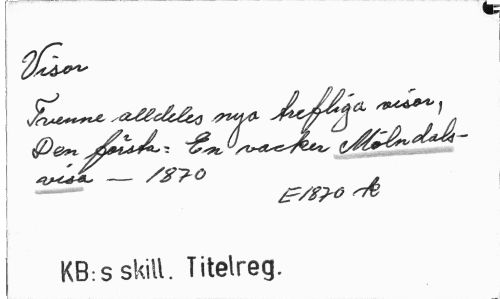 Visor
Tvenne alldeles nya trefliga visor,
Den första: En vacker Mölndals-
visa — 1870
E1870 k
KB:s skill. Titelreg.